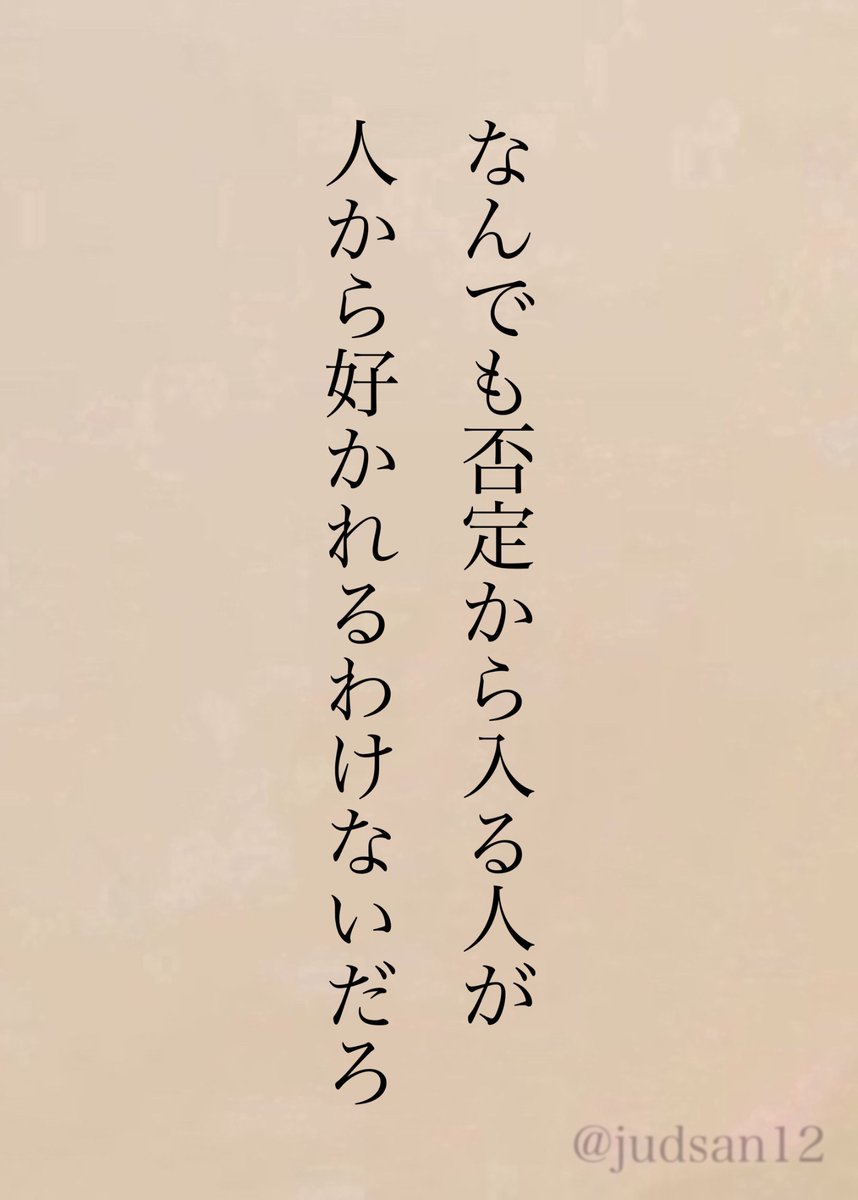 なんでも否定から入る人が
人から好かれるわけないだろ
@judsan12